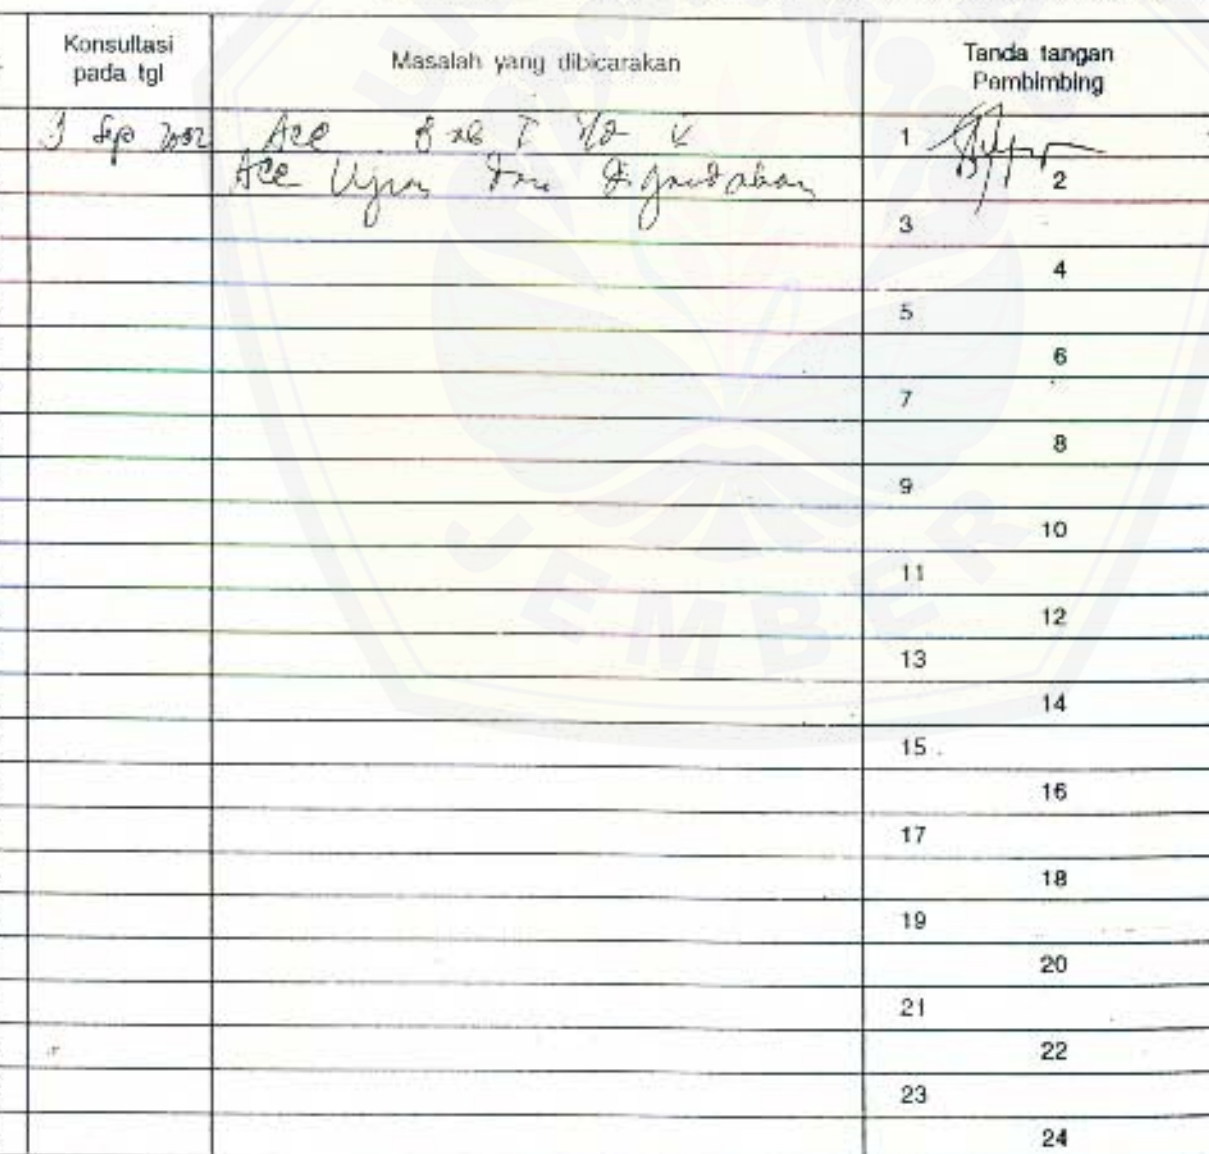 Konsultasi
pada tgl
Masalah yang dibicarakan
Tanda tangan
Pembimbing
Sep 2002 Acc Bab I s/d V
1
Acc Ujian dan digandakan
2
3
4
5
6
7
8
9
10
11
12
13
14
15
16
17
18
19
20
21
22
23
24
JEMBER